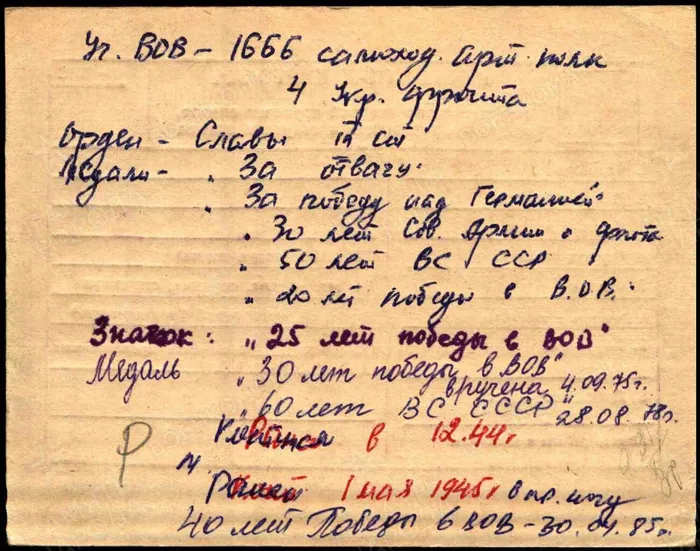 Уч. ВОВ - 1666 самоход. арт. полк
4 Укр. фронта
Орден - Славы III ст
Медали - " За отвагу"
" За победу над Германией"
" 30 лет Сов. Армии и флота
" 50 лет ВС СССР
" 20 лет победы в В.О.В."
Значок: "25 лет победы в ВОВ"
Медаль "30 лет победы в ВОВ"
вручена 4.09.75г.
"60 лет ВС СССР" 28.08.78г.
Р в 12.44г
1 мая 1945г в пр. ногу
40 лет Победы в ВОВ - 30.04.85г.